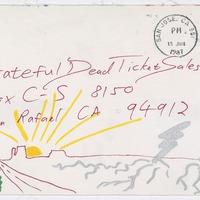 SAN JOSE, CA 951
PM
15 JUN
1987
rateful Dead Ticket Sales
ox C-S 8150
n Rafael CA 94912